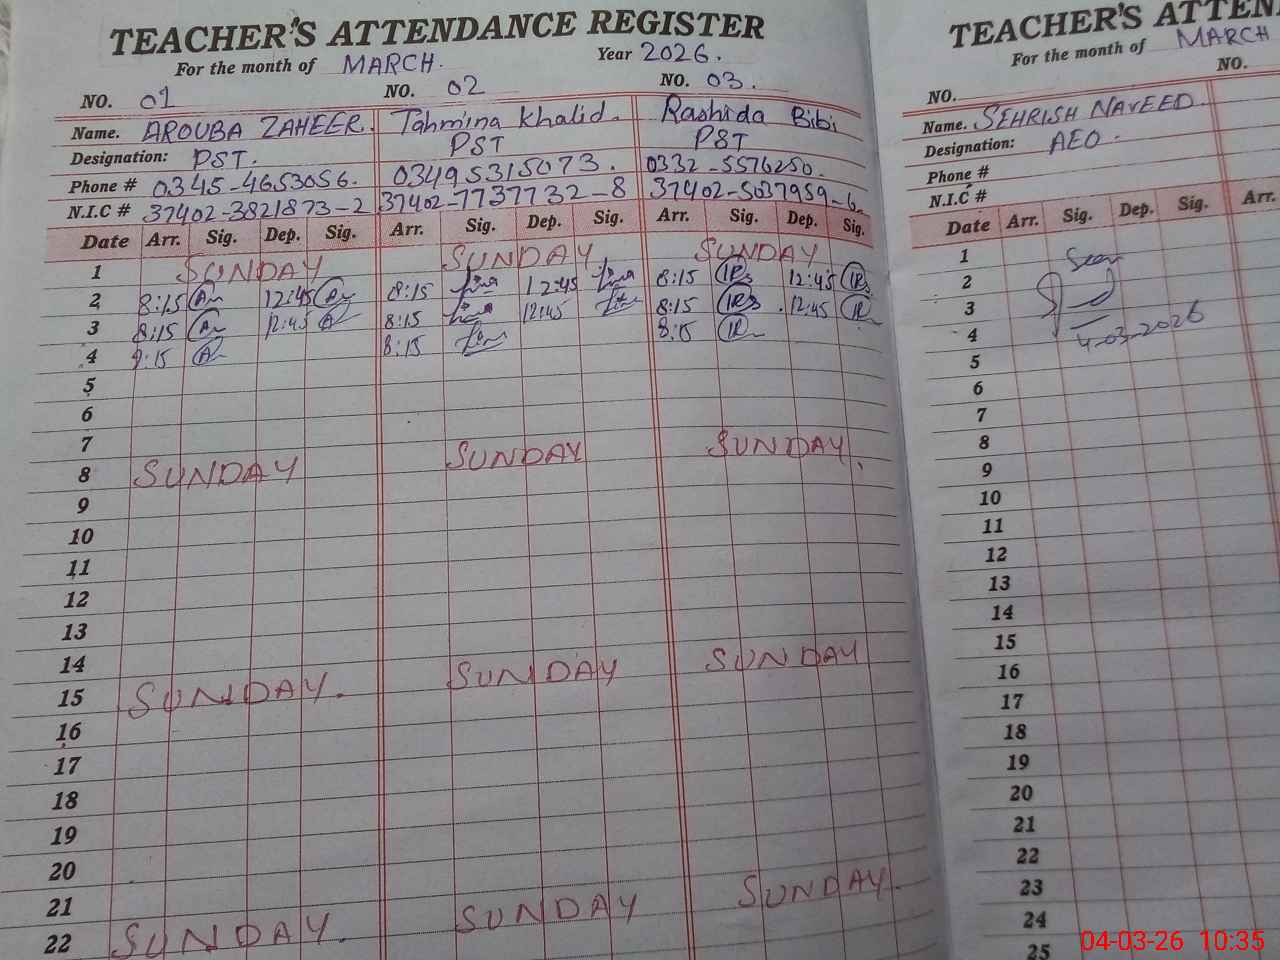 TEACHER'S ATTENDANCE REGISTER
For the month of MARCH. Year 2026.
NO. 01 NO. 02 NO. 03.
Name. AROUBA ZAHEER. Tahmina Khalid. Rashida Bibi
Designation: PST. PST PST
Phone # 0345-4653056. 03495315073. 0332-5576250.
N.I.C # 37402-3821873-2 37402-7737732-8 37402-5037959-6
Date Arr. Sig. Dep. Sig. Arr. Sig. Dep. Sig. Arr. Sig. Dep. Sig.
1 SUNDAY SUNDAY SUNDAY
2 8:15 12:45 8:15 12:45 8:15 12:45
3 8:15 12:45 8:15 12:45 8:15 12:45
4 8:15 8:15
5
6
7
8 SUNDAY SUNDAY SUNDAY.
9
10
11
12
13
14
15 SUNDAY. SUNDAY SUNDAY
16
17
18
19
20
21
22 SUNDAY. SUNDAY SUNDAY.
TEACHER'S ATTEN
For the month of MARCH
NO. NO.
Name. SEHRISH NAVEED.
Designation: AEO.
Phone #
N.I.C #
Date Arr. Sig. Dep. Sig. Arr.
1
2
3
4 4-03-2026
5
6
7
8
9
10
11
12
13
14
15
16
17
18
19
20
21
22
23
24
25
04-03-26 10:35